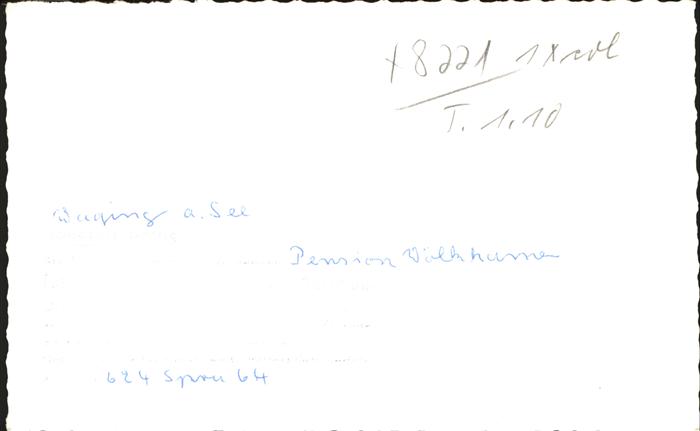 +8221 1x col
T. 1.10
Waging a. See
Pension Wölkhammer
624 Spru 64